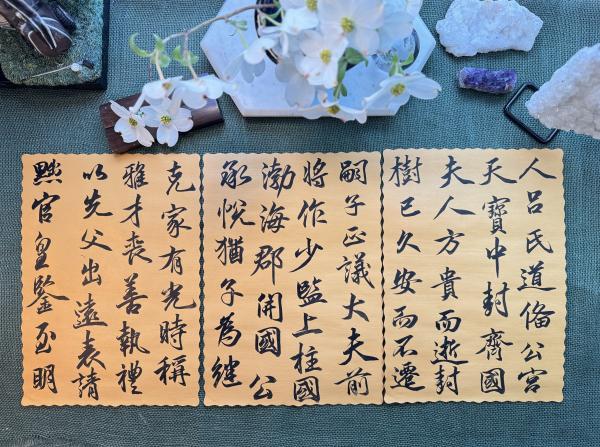 人呂氏道俻公宫
天寶中封齊國
夫人方貴而逝封
樹已久安而不遷
嗣子正議大夫前
將作少監上柱國
渤海郡開國公
承悅猶子為繼
克家有光時稱
雅才丧善執禮
以先父出遠表請
黜官皇鑒至明